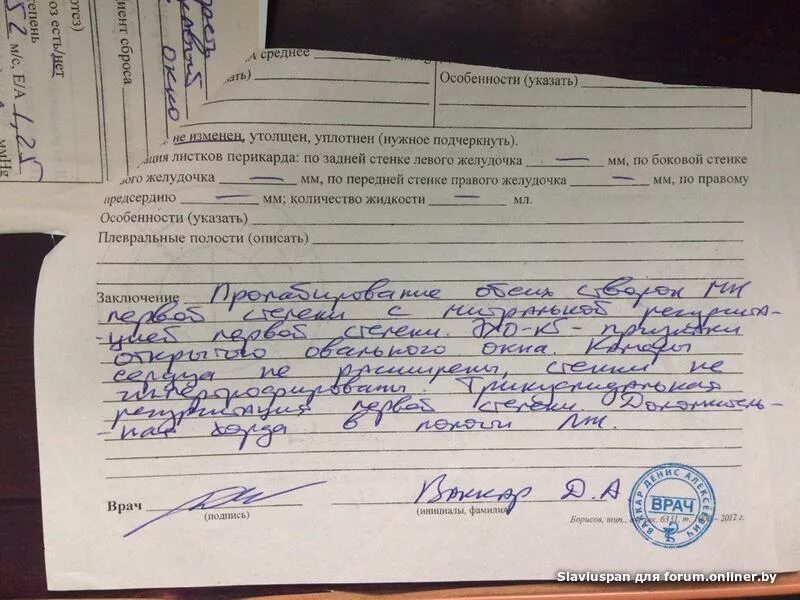 тотез)
оз есть/нет
тепень
52 м/с, Е/А 1,25
ммHg
иент сброса
окно
А среднее
ать)
Особенности (указать)
не изменен, утолщен, уплотнен (нужное подчеркнуть).
ация листков перикарда: по задней стенке левого желудочка — мм, по боковой стенке
вого желудочка — мм, по передней стенке правого желудочка — мм, по правому
предсердию — мм; количество жидкости — мл.
Особенности (указать)
Плевральные полости (описать)
Заключение Пролабирование обеих створок МК
первой степени с митральной регургита-
-цией первой степени. ЭХО-КС - признаки
открытого овального окна. Камеры
сердца не расширены, стенки не
гипертрофированы. Трикуспидальная
регургитация первой степени. Дополнитель-
-ная хорда в полости ЛЖ.
Врач
Ваккар Д.А.
(подпись)
(инициалы, фамилия)
ВАККАР ДЕНИС АЛЕКСЕЕВИЧ
ВРАЧ
Борисов, тип., зак. 6331, т. – 2012 г.
Slaviuspan для forum.onliner.by